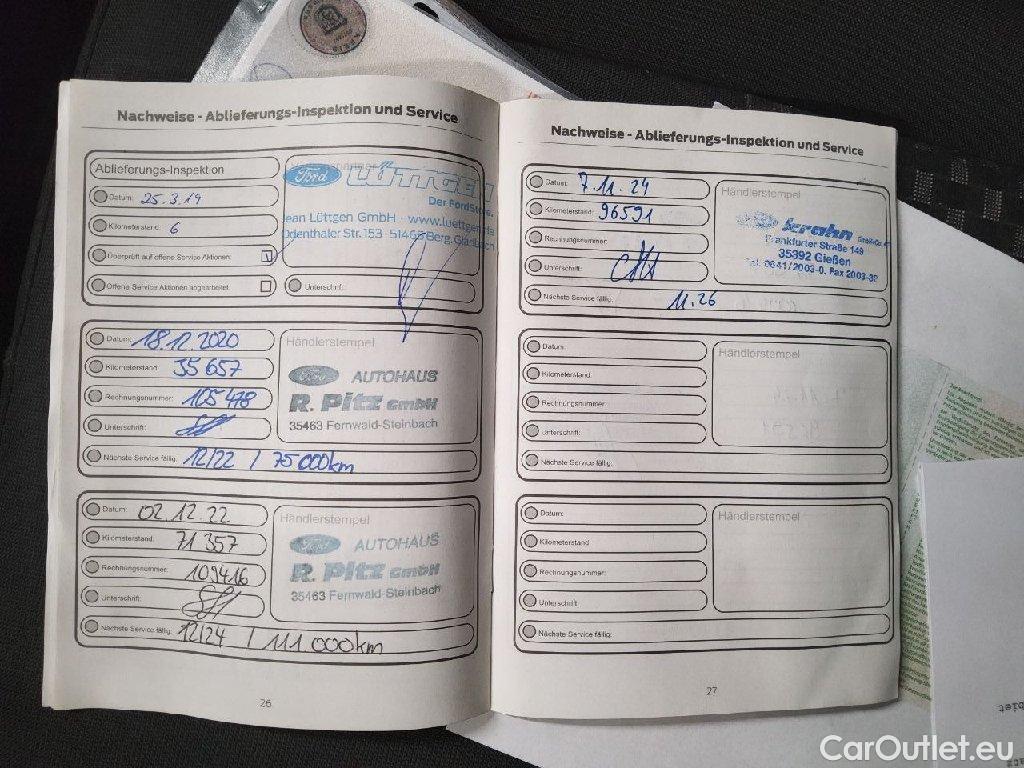 Nachweise - Ablieferungs-Inspektion und Service
Ablieferungs-Inspektion
Datum: 25.3.19
Kilometerstand: 6
Überprüft auf offene Service Aktionen:
Offene Service Aktionen abgearbeitet:
Ford LÜTTGEN
Der FordStore.
Jean Lüttgen GmbH · www.luettgen.de
Odenthaler Str. 153 · 51465 Berg. Gladbach
Unterschrift:
Datum: 18.12.2020
Kilometerstand: 35657
Rechnungsnummer: 105478
Unterschrift:
Nächste Service fällig: 12/22 / 75 000km
Händlerstempel
Ford AUTOHAUS
R. Pitz GmbH
35463 Fernwald-Steinbach
Datum: 02.12.22
Kilometerstand: 71 357
Rechnungsnummer: 109416
Unterschrift:
Nächste Service fällig: 12/24 / 111 000km
Händlerstempel
Ford AUTOHAUS
R. Pitz GmbH
35463 Fernwald-Steinbach
26
Nachweise - Ablieferungs-Inspektion und Service
Datum: 7.11.24
Kilometerstand: 96591
Rechnungsnummer:
Unterschrift:
Nächste Service fällig: 11.26
Händlerstempel
Krahn
Frankfurter Straße 149
35392 Gießen
Tel. 0641/2003-0, Fax 2003-32
Datum:
Kilometerstand:
Rechnungsnummer:
Unterschrift:
Nächste Service fällig:
Händlerstempel
Datum:
Kilometerstand:
Rechnungsnummer:
Unterschrift:
Nächste Service fällig:
Händlerstempel
27
CarOutlet.eu